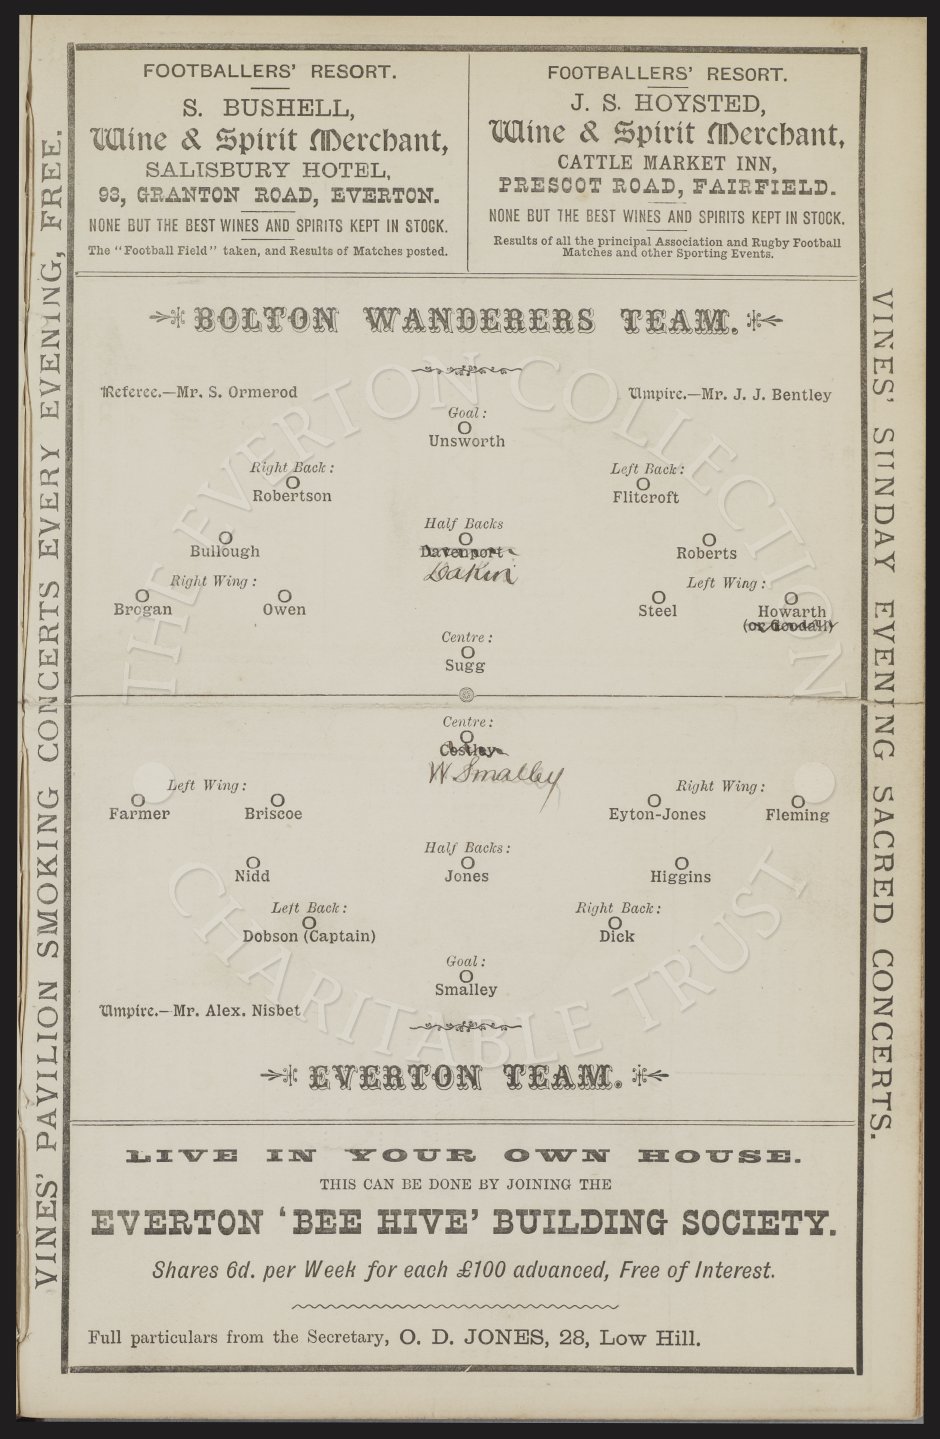 FOOTBALLERS' RESORT.
S. BUSHELL,
Wine & Spirit Merchant,
SALISBURY HOTEL,
93, GRANTON ROAD, EVERTON.
NONE BUT THE BEST WINES AND SPIRITS KEPT IN STOCK.
The "Football Field" taken, and Results of Matches posted.
FOOTBALLERS' RESORT.
J. S. HOYSTED,
Wine & Spirit Merchant,
CATTLE MARKET INN,
PRESCOT ROAD, FAIRFIELD.
NONE BUT THE BEST WINES AND SPIRITS KEPT IN STOCK.
Results of all the principal Association and Rugby Football
Matches and other Sporting Events.
VINES' PAVILION SMOKING CONCERTS EVERY EVENING, FREE.
VINES' SUNDAY EVENING SACRED CONCERTS.
BOLTON WANDERERS TEAM.
Referee.—Mr. S. Ormerod
Umpire.—Mr. J. J. Bentley
Goal:
O
Unsworth
Right Back:
O
Robertson
Left Back:
O
Flitcroft
Half Backs
O
Bullough
O
Davenport
Eakin
O
Roberts
Right Wing:
O
Brogan
O
Owen
Left Wing:
O
Steel
O
Howarth
(or Goodall)
Centre:
O
Sugg
Centre:
O
Costley
W. Smalley
Left Wing:
O
Farmer
O
Briscoe
Right Wing:
O
Eyton-Jones
O
Fleming
Half Backs:
O
Nidd
O
Jones
O
Higgins
Left Back:
O
Dobson (Captain)
Right Back:
O
Dick
Goal:
O
Smalley
Umpire.—Mr. Alex. Nisbet
EVERTON TEAM.
LIVE IN YOUR OWN HOUSE.
THIS CAN BE DONE BY JOINING THE
EVERTON 'BEE HIVE' BUILDING SOCIETY.
Shares 6d. per Week for each £100 advanced, Free of Interest.
Full particulars from the Secretary, O. D. JONES, 28, Low Hill.
THE EVERTON COLLECTION
CHARITABLE TRUST